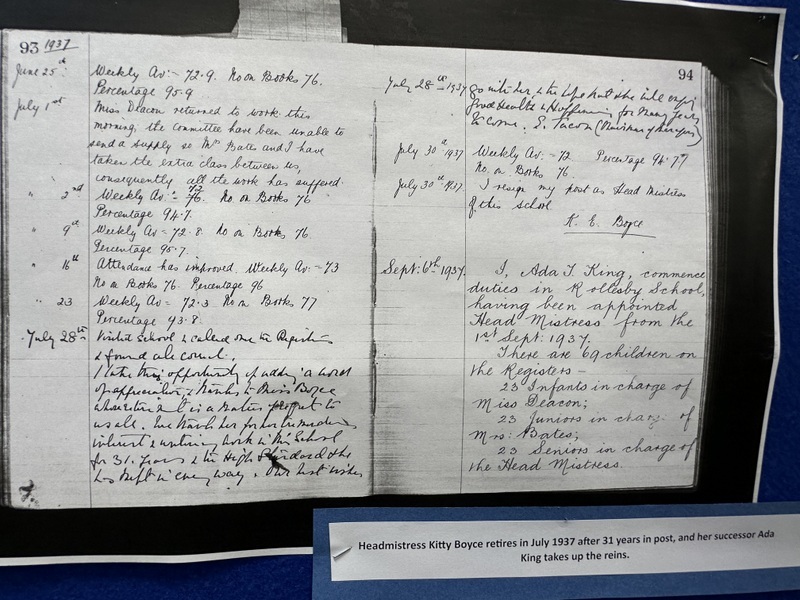 93 1937
June 25th Weekly Av:- 72.9. No on Books 76.
Percentage 95.9
July 1st Miss Deacon returned to work this
morning, the committee have been unable to
send a supply so Mrs Bates and I have
taken the extra class between us,
consequently all the work has suffered.
" 2nd Weekly Av:- 72 No. on Books 76
Percentage 94.7.
" 9th Weekly Av = 72.8. No on Books 76.
Percentage 95.7.
" 16th Attendance has improved. Weekly Av:- 73
No on Books 76. Percentage 96
" 23 Weekly Av = 72.3 No on Books 77
Percentage 93.8.
July 28th Visited School & called over the Registers
& found all correct.
I take this opportunity of adding a word
of appreciation & thanks to Miss Boyce
whose retiral is a matter of regret to
us all. We thank her for her
interest & untiring work in this School
for 31 Years & the High Standard she
has kept in every way. Our best wishes
94
July 28th 1937 go with her & the hope that she will enjoy
Good Health & Happiness for Many Years
to come. E. Tacon
July 30th 1937 Weekly Av:- 72 Percentage 94.77
No. on Books 76
July 30th 1937 I resign my post as Head Mistress
of this school
K. E. Boyce
Sept: 6th 1937. I, Ada T. King, commence
duties in Rollesby School,
having been appointed
Head Mistress from the
1st Sept: 1937.
There are 69 children on
the Registers –
23 Infants in charge of
Miss Deacon;
23 Juniors in charge of
Mrs: Bates;
23 Seniors in charge of
the Head Mistress.
Headmistress Kitty Boyce retires in July 1937 after 31 years in post, and her successor Ada
King takes up the reins.